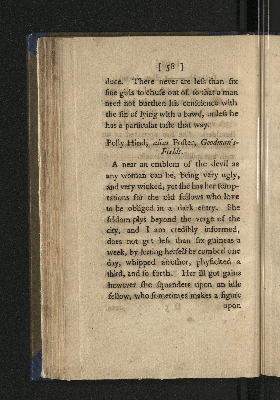 [ 58 ]
duce. There never are leſs than ſix
fine girls to chuſe out of, ſo that a man
need not burthen his conſcience with
the ſin of lying with a bawd, unleſs he
has a particular taſte that way.
Polly Hind, alias Foſter, Goodman's-
Fields.
A near an emblem of the devil as
any woman can be, being very ugly,
and very wicked, yet ſhe has her temp-
tations for the old fellows who love
to be obliged in a dark entry. She
ſeldom plys beyond the verge of the
city, and I am credibly informed,
does not get leſs than ſix guineas a
week, by letting herſelf be combed one
day, whipped another, phyſicked a
third, and ſo forth. Her ill got gains
however ſhe ſquanders upon an idle
fellow, who ſometimes makes a figure
upon